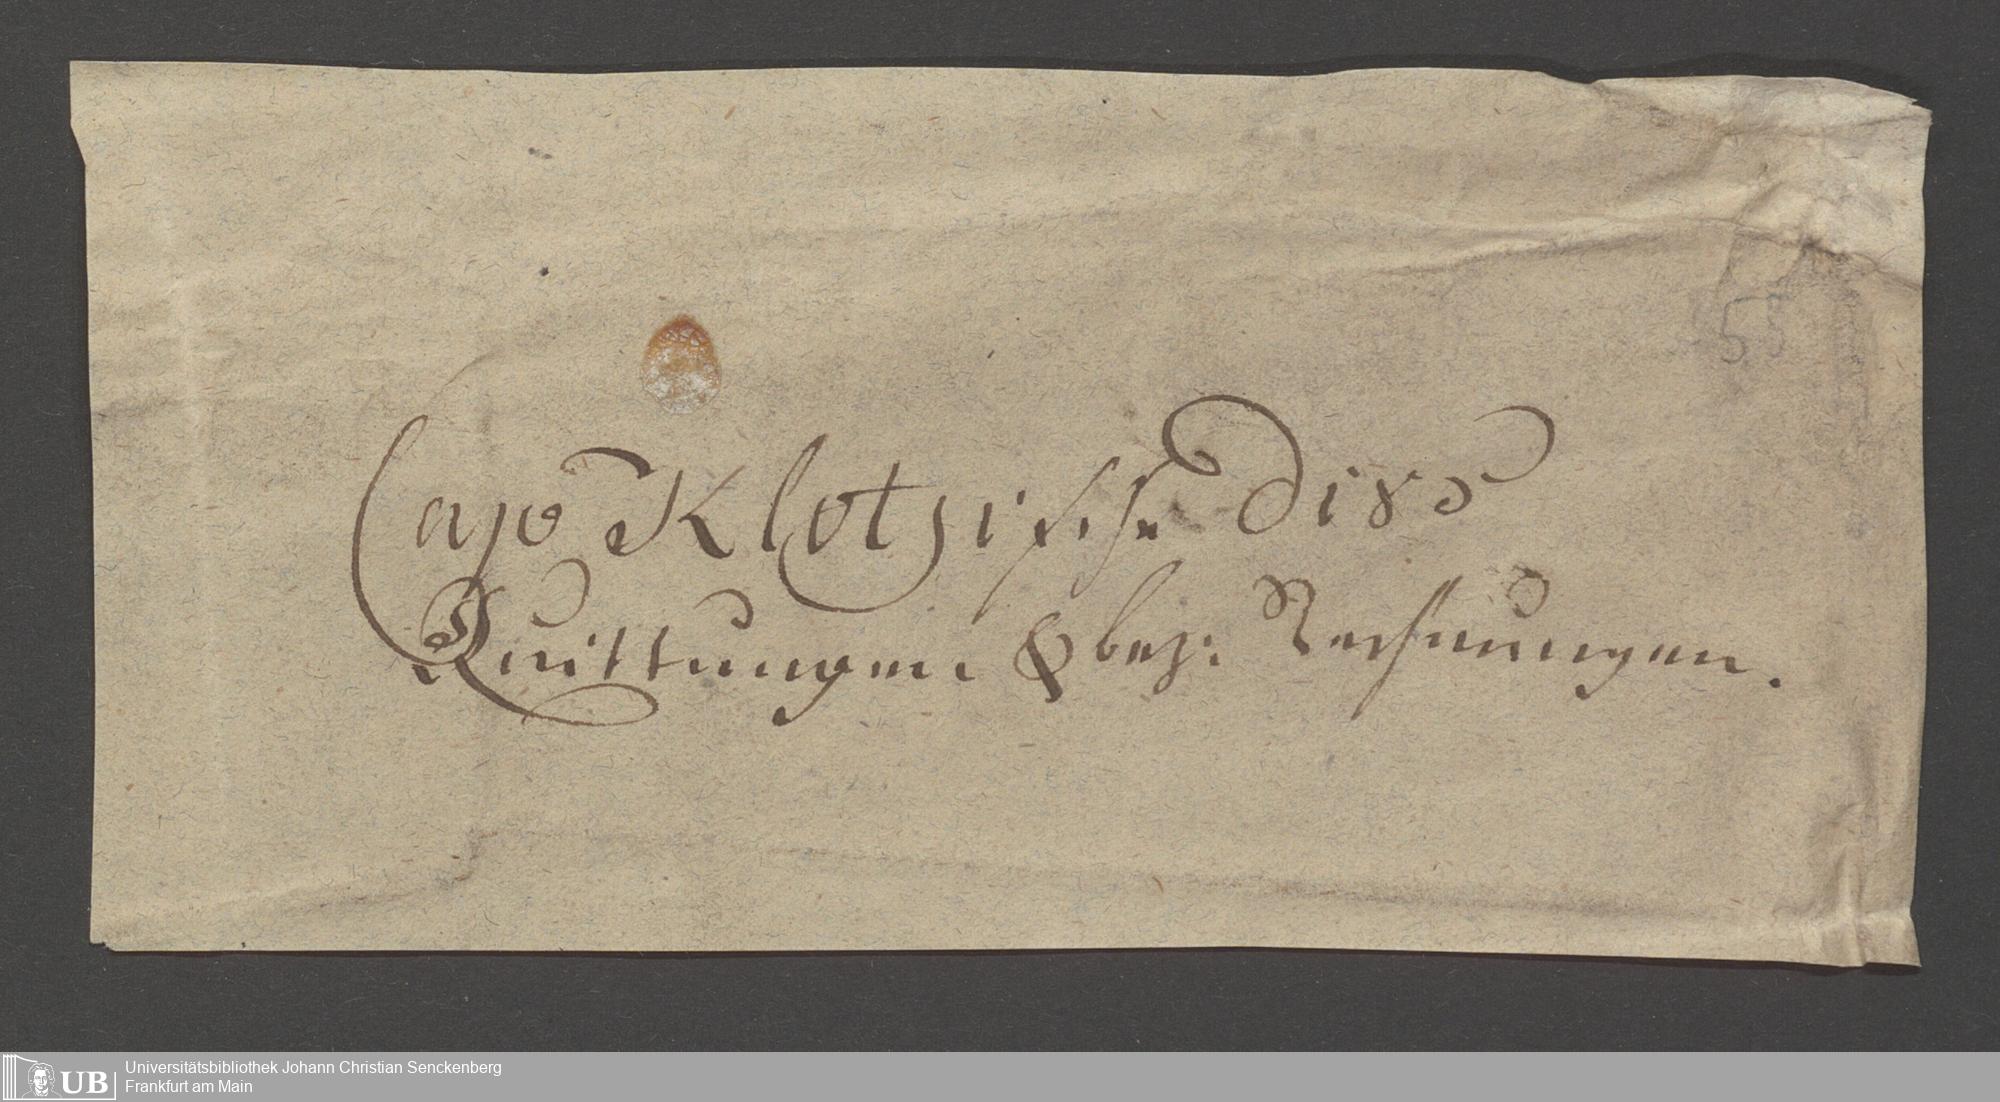 55
Cajo Klotzische divs
Quittungen & bez: Rechnungen.
UB
Universitätsbibliothek Johann Christian Senckenberg
Frankfurt am Main